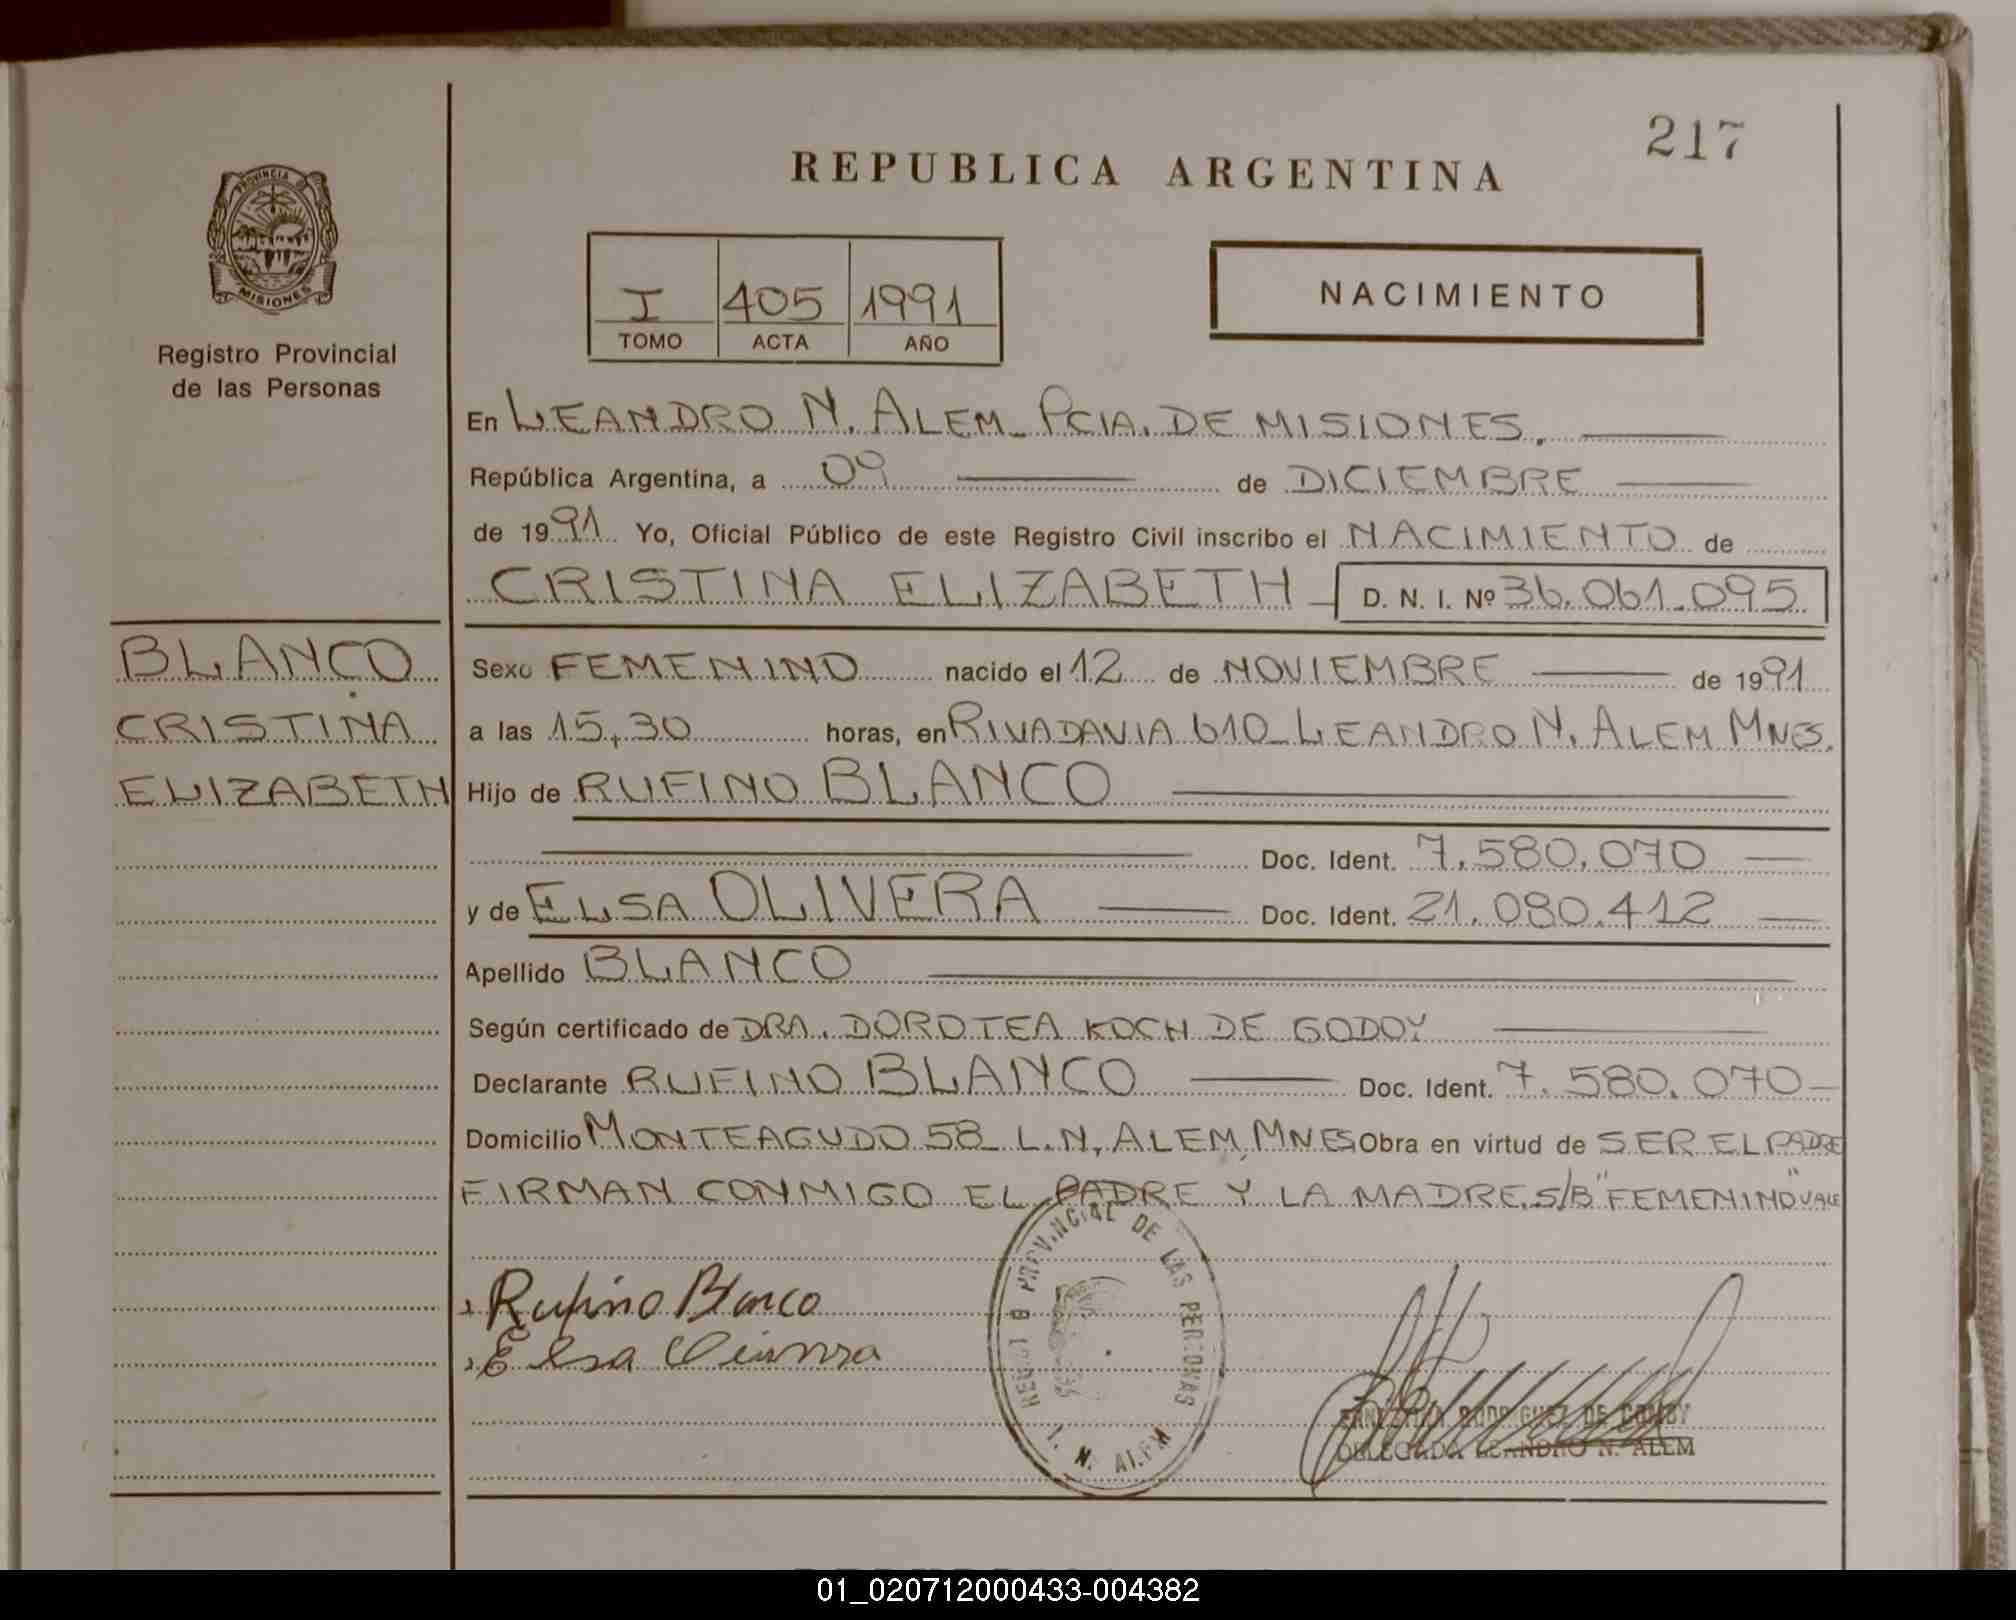 217
REPUBLICA ARGENTINA
PROVINCIA DE
MISIONES
Registro Provincial
de las Personas
I 405 1991
TOMO ACTA AÑO
NACIMIENTO
En LEANDRO N. ALEM_ PCIA. DE MISIONES.
República Argentina, a 09 de DICIEMBRE
de 1991. Yo, Oficial Público de este Registro Civil inscribo el NACIMIENTO de
CRISTINA ELIZABETH D. N. I. Nº 36.061.095
BLANCO
CRISTINA
ELIZABETH
Sexo FEMENINO nacido el 12 de NOVIEMBRE de 1991
a las 15,30 horas, en RIVADAVIA 610_ LEANDRO N. ALEM MNES.
Hijo de RUFINO BLANCO
Doc. Ident. 7.580.070
y de ELSA OLIVERA Doc. Ident. 21.080.412
Apellido BLANCO
Según certificado de DRA. DOROTEA KOCH DE GODOY
Declarante RUFINO BLANCO Doc. Ident. 7.580.070
Domicilio MONTEAGUDO 58_ L.N. ALEM, MNES Obra en virtud de SER EL PADRE
FIRMAN CONMIGO EL PADRE Y LA MADRE. S/B "FEMENINO" VALE
Rufino Blanco
Elsa
PROVINCIAL DE LAS PERSONAS
L. N. ALEM
RODRIGUEZ DE
DELEGADA LEANDRO N. ALEM
01_020712000433-004382